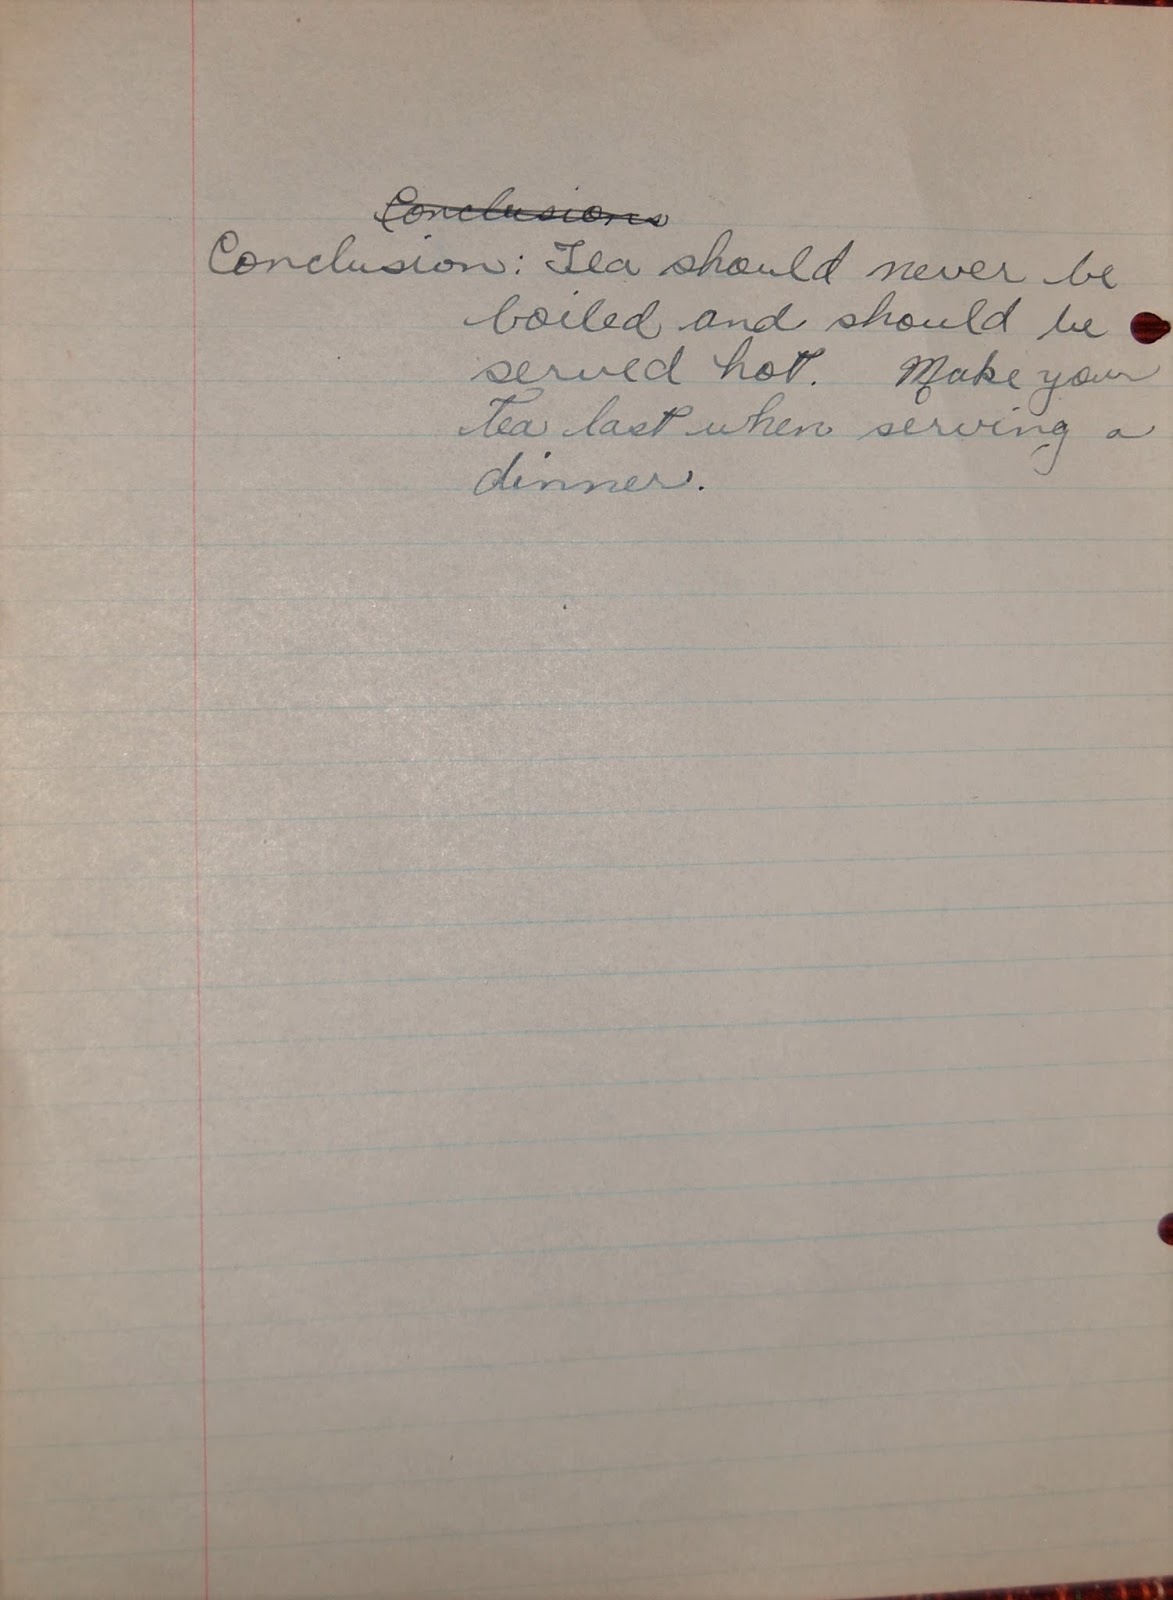 Conclusions
Conclusion: Tea should never be
boiled and should be
served hot. Make your
tea last when serving a
dinner.